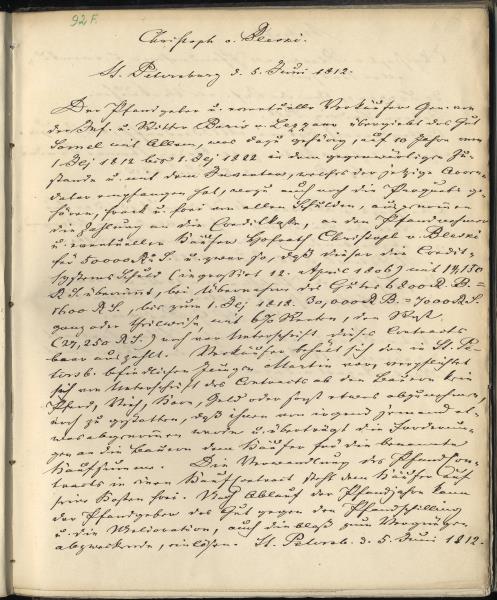 92 F.
Christoph v. Bleski.
St. Petersburg d. 5. Juni 1812.
Der Pfandgeber u. eventuelle Verkäufer General
der Inf. u. Ritter Boris v. Lezzano übergiebt das Gut
mit Allem, was dazu gehörig, auf 10 Jahre von
1812 bis 1822 in dem gegenwärtigen Zu-
stande u. mit dem Inventar, welches der jetzige Arren-
dator empfangen hat, wozu auch noch die Producte ge-
hören, frank u. frei von allen Schulden, ausgenommen
die Zahlung an die Creditkasse, an den Pfandnehmer
u. eventuellen Käufer Hofrath Christoph v. Bleski
für 50000 R. S. u. zwar so, daß dieser die Credit-
systems Schuld (ingrossirt 12. April 1806) mit 14,150
R. S. übernimt, bei Uebernahme des Gutes 6800 R. B. =
1600 R. S., bis zum 1. 1818. 30,000 R. B. = 7000 R. S.
ganz oder theilweise, mit 6% Renten, den Rest
(27,250 R. S.) noch vor Unterschrift dieses Contracts
baar auszahlt. Verkäufer behält sich den in St. Pe-
tersb. befindlichen Jungen Martin vor, verpflichtet
sich von Unterschrift des Contracts ab den Bauern kein
Pferd, Vieh, Korn, Geld oder sonst etwas abzunehmen,
noch zu gestatten, daß ihnen von irgend jemand et-
was abgenommen werde u. überträgt die Forderun-
gen an die Bauern dem Käufer für die benannte
Kaufsumme. Die Verwandlung des Pfandcon-
tracts in einen Kaufcontract steht dem Käufer auf
seine Kosten frei. Nach Ablauf der Pfandjahre kann
der Pfandgeber das Gut gegen den Pfandschilling
u. die Melioration, auch die blos zum Vergnügen
abzweckende, einlösen. St. Petersb. d. 5. Juni 1812.